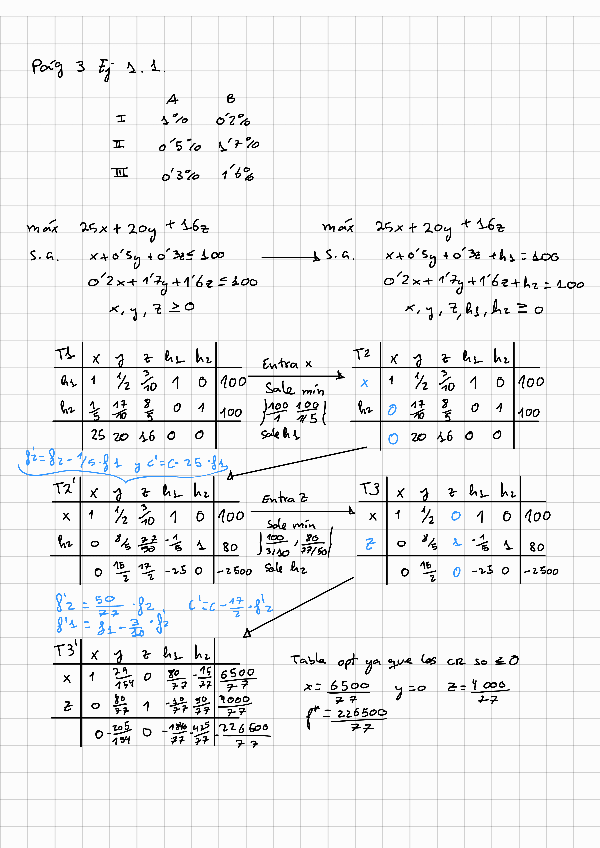 Pág 3 Ej 1.1.
A B
I 1% 0'2%
II 0'5% 1'7%
III 0'3% 1'6%
máx 25x + 20y + 16z
s.a. x + 0'5y + 0'3z ≤ 100
0'2x + 1'7y + 1'6z ≤ 100
x, y, z ≥ 0
máx 25x + 20y + 16z
s.a. x + 0'5y + 0'3z + h1 = 100
0'2x + 1'7y + 1'6z + h2 = 100
x, y, z, h1, h2 ≥ 0
T1 x y z h1 h2
h1 1 1/2 3/10 1 0 100
h2 1/5 17/10 8/5 0 1 100
25 20 16 0 0
Entra x
Sale mín
{100/1 100/1/5}
Sale h1
T2 x y z h1 h2
x 1 1/2 3/10 1 0 100
h2 0 17/10 8/5 0 1 100
0 20 16 0 0
f'2 = f2 - 1/5·f1 y c' = c - 25·f1
T2' x y z h1 h2
x 1 1/2 3/10 1 0 100
h2 0 8/5 77/50 -1/5 1 80
0 15/2 17/2 -25 0 -2500
Entra z
Sale mín
{100/3/10, 80/77/50}
Sale h2
T3 x y z h1 h2
x 1 1/2 0 1 0 100
z 0 8/5 1 -1/5 1 80
0 15/2 0 -25 0 -2500
f'2 = 50/77·f2 c' = c - 17/2·f'2
f'1 = f1 - 3/10·f'2
T3' x y z h1 h2
x 1 29/154 0 80/77 -15/77 6500/77
z 0 80/77 1 -10/77 50/77 4000/77
0 -205/154 0 -425/77 -226500/77
Tabla opt ya que los CR so ≤ 0
x = 6500/77 y = 0 z = 4000/77
f* = 226500/77